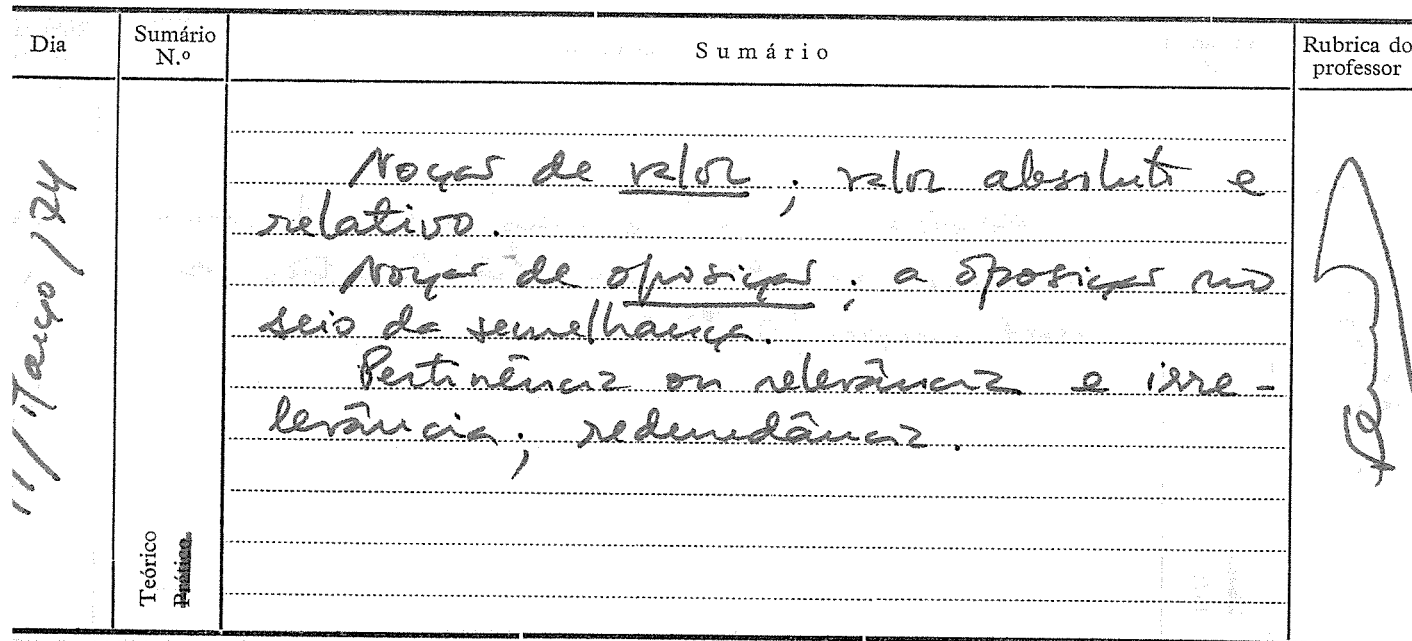 Dia
Sumário
N.º
Sumário
Rubrica do
professor
11/Março/74
Noção de valor; valor absoluto e
relativo.
Noção de oposição; a oposição no
seio da semelhança.
Pertinência ou relevância e irre-
levância; redundância.
Teórico
Prático